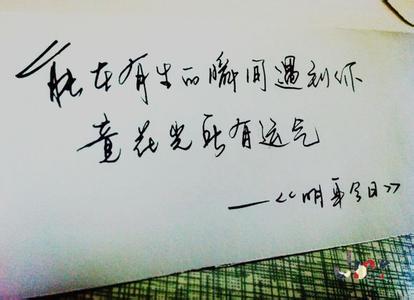 能在有生的瞬间遇到你
竟花光所有运气
—《明年今日》